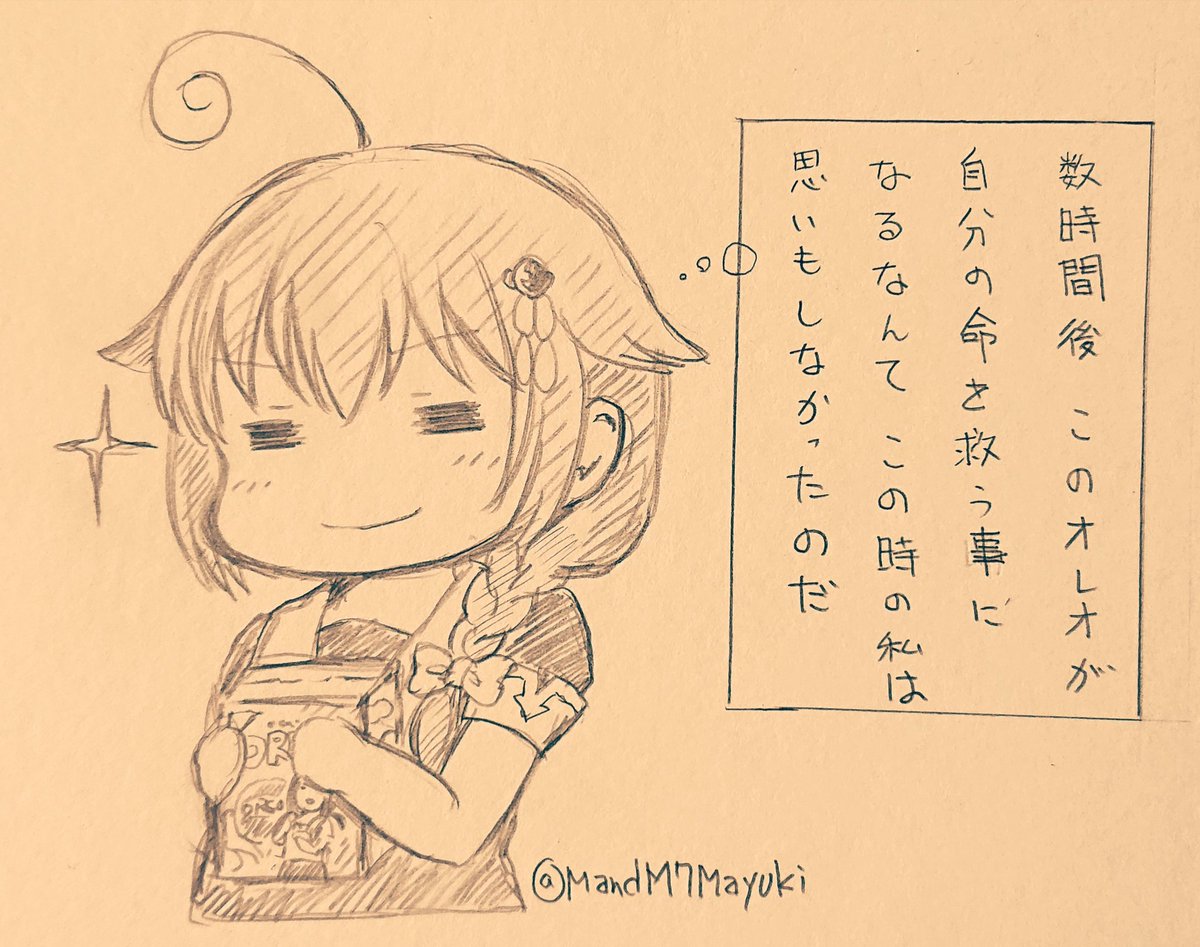 数時間後 このオレオが
自分の命を救う事に
なるなんて この時の私は
思いもしなかったのだ
OR
OREO
@MandM7Mayuki